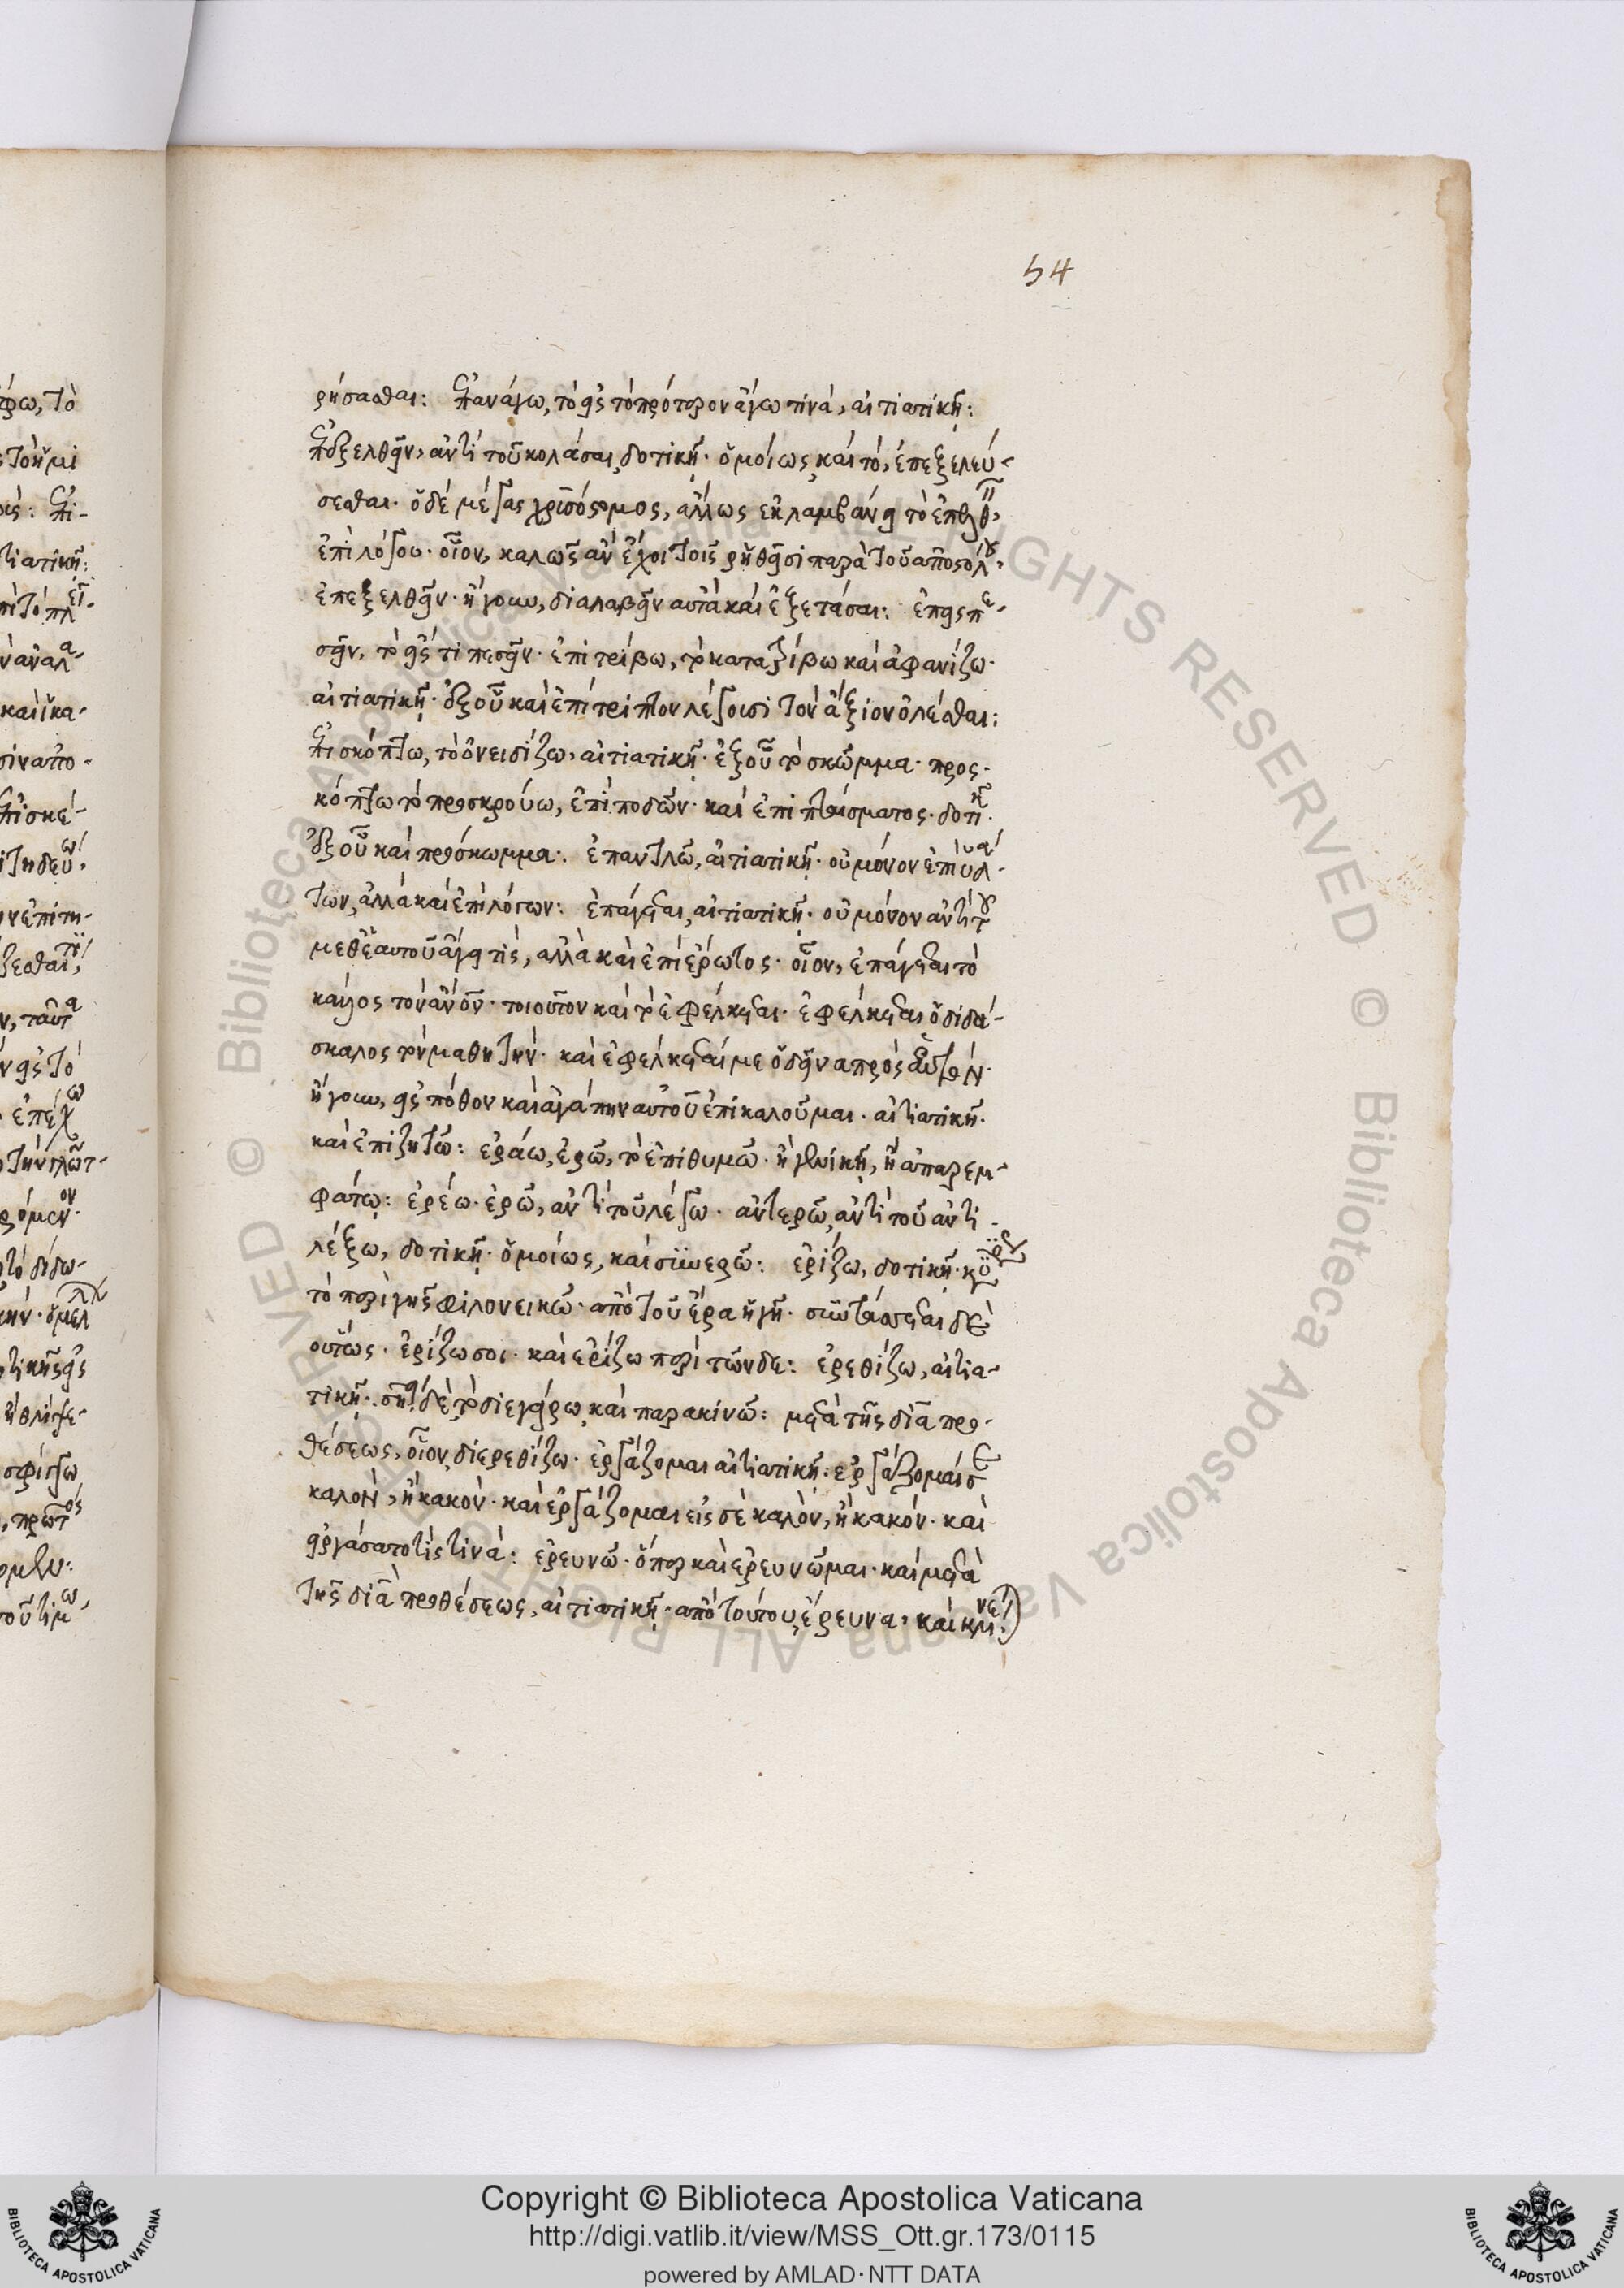 54
ρήσασθαι: ἐπανάγω, τὸ εἰς τὸ πρότερον ἄγω τινά, αἰτιατικῇ:
ἐπεξελθεῖν, ἀντὶ τοῦ κολάσαι, δοτικῇ· ὁμοίως καὶ τό, ἐπεξελεύ-
σεσθαι· ὁ δὲ μέγας χρυσόστομος, ἄλλως ἐκλαμβάνει τὸ ἐπεξελθεῖν,
ἐπὶ λόγου· οἷον, καλῶς ἂν ἔχοι τοῖς ῥηθεῖσι παρὰ τοῦ ἀποστόλου,
ἐπεξελθεῖν· ἤγουν, διαλαβεῖν αὐτὰ καὶ ἐξετάσαι: ἐπεισπε-
σεῖν, τὸ εἴς τι πεσεῖν· ἐπιτρίβω, τὸ κατατρίβω καὶ ἀφανίζω·
αἰτιατικῇ· ἐξ οὗ καὶ ἐπίτριπτον λέγουσι τὸν ἄξιον ὀλέσθαι:
ἐπισκόπτω, τὸ ὀνειδίζω, αἰτιατικῇ· ἐξ οὗ τὸ σκῶμμα· προς-
κόπτω τὸ προσκρούω, ἐπὶ ποδῶν· καὶ ἐπὶ πταίσματος· δοτικῇ·
ἐξ οὗ καὶ πρόσκωμμα: ἐπαντλῶ, αἰτιατικῇ· οὐ μόνον ἐπὶ ὑδά-
των, ἀλλὰ καὶ ἐπὶ λόγων: ἐπάγεται, αἰτιατικῇ· οὐ μόνον ἀντὶ τοῦ
μεθ' ἑαυτοῦ ἄγει τις, ἀλλὰ καὶ ἐπὶ ἔρωτος· οἷον, ἐπάγεται τὸ
κάλλος τὸν ἄνον· τοιοῦτον καὶ τὸ ἐφέλκεται· ἐφέλκεται ὁ διδά-
σκαλος τὸν μαθητήν· καὶ ἐφέλκεταί με ὁ δεῖνα πρὸς ἑαυτόν·
ἤγουν, εἰς πόθον καὶ ἀγάπην αὐτοῦ ἐπικαλοῦμαι· αἰτιατικῇ·
καὶ ἐπιζητῶ: ἐράω, ἐρῶ, τὸ ἐπιθυμῶ· ἢ γενικῇ, ἢ ἀπαρεμ-
φάτῳ: ἐρέω· ἐρῶ, ἀντὶ τοῦ λέγω· ἀντερῶ, ἀντὶ τοῦ ἀντι-
λέξω, δοτικῇ· ὁμοίως, καὶ συνερῶ: ἐρίζω, δοτικῇ· κυρίως
τὸ περὶ γῆς φιλονεικῶ· ἀπὸ τοῦ ἔρα ἡ γῆ· συντάσσεται δὲ
οὕτως· ἐρίζω σοι· καὶ ἐρίζω περὶ τῶνδε: ἐρεθίζω, αἰτια-
τικῇ· σημαίνει δὲ τὸ διεγείρω καὶ παρακινῶ: μετὰ τῆς διὰ προ-
θέσεως, οἷον διερεθίζω· ἐργάζομαι αἰτιατικῇ: ἐργάζομαί σε
καλὸν, ἢ κακόν· καὶ ἐργάζομαι εἰς σὲ καλὸν, ἢ κακόν· καὶ
εἰργάσατό τις τινά: ἐρευνῶ· ὅπερ καὶ ἐρευνῶμαι· καὶ μετὰ
τῆς διὰ προθέσεως, αἰτιατικῇ· ἀπὸ τούτου, ἔρευνα,
Copyright © Biblioteca Apostolica Vaticana
http://digi.vatlib.it/view/MSS_Ott.gr.173/0115
powered by AMLAD·NTT DATA